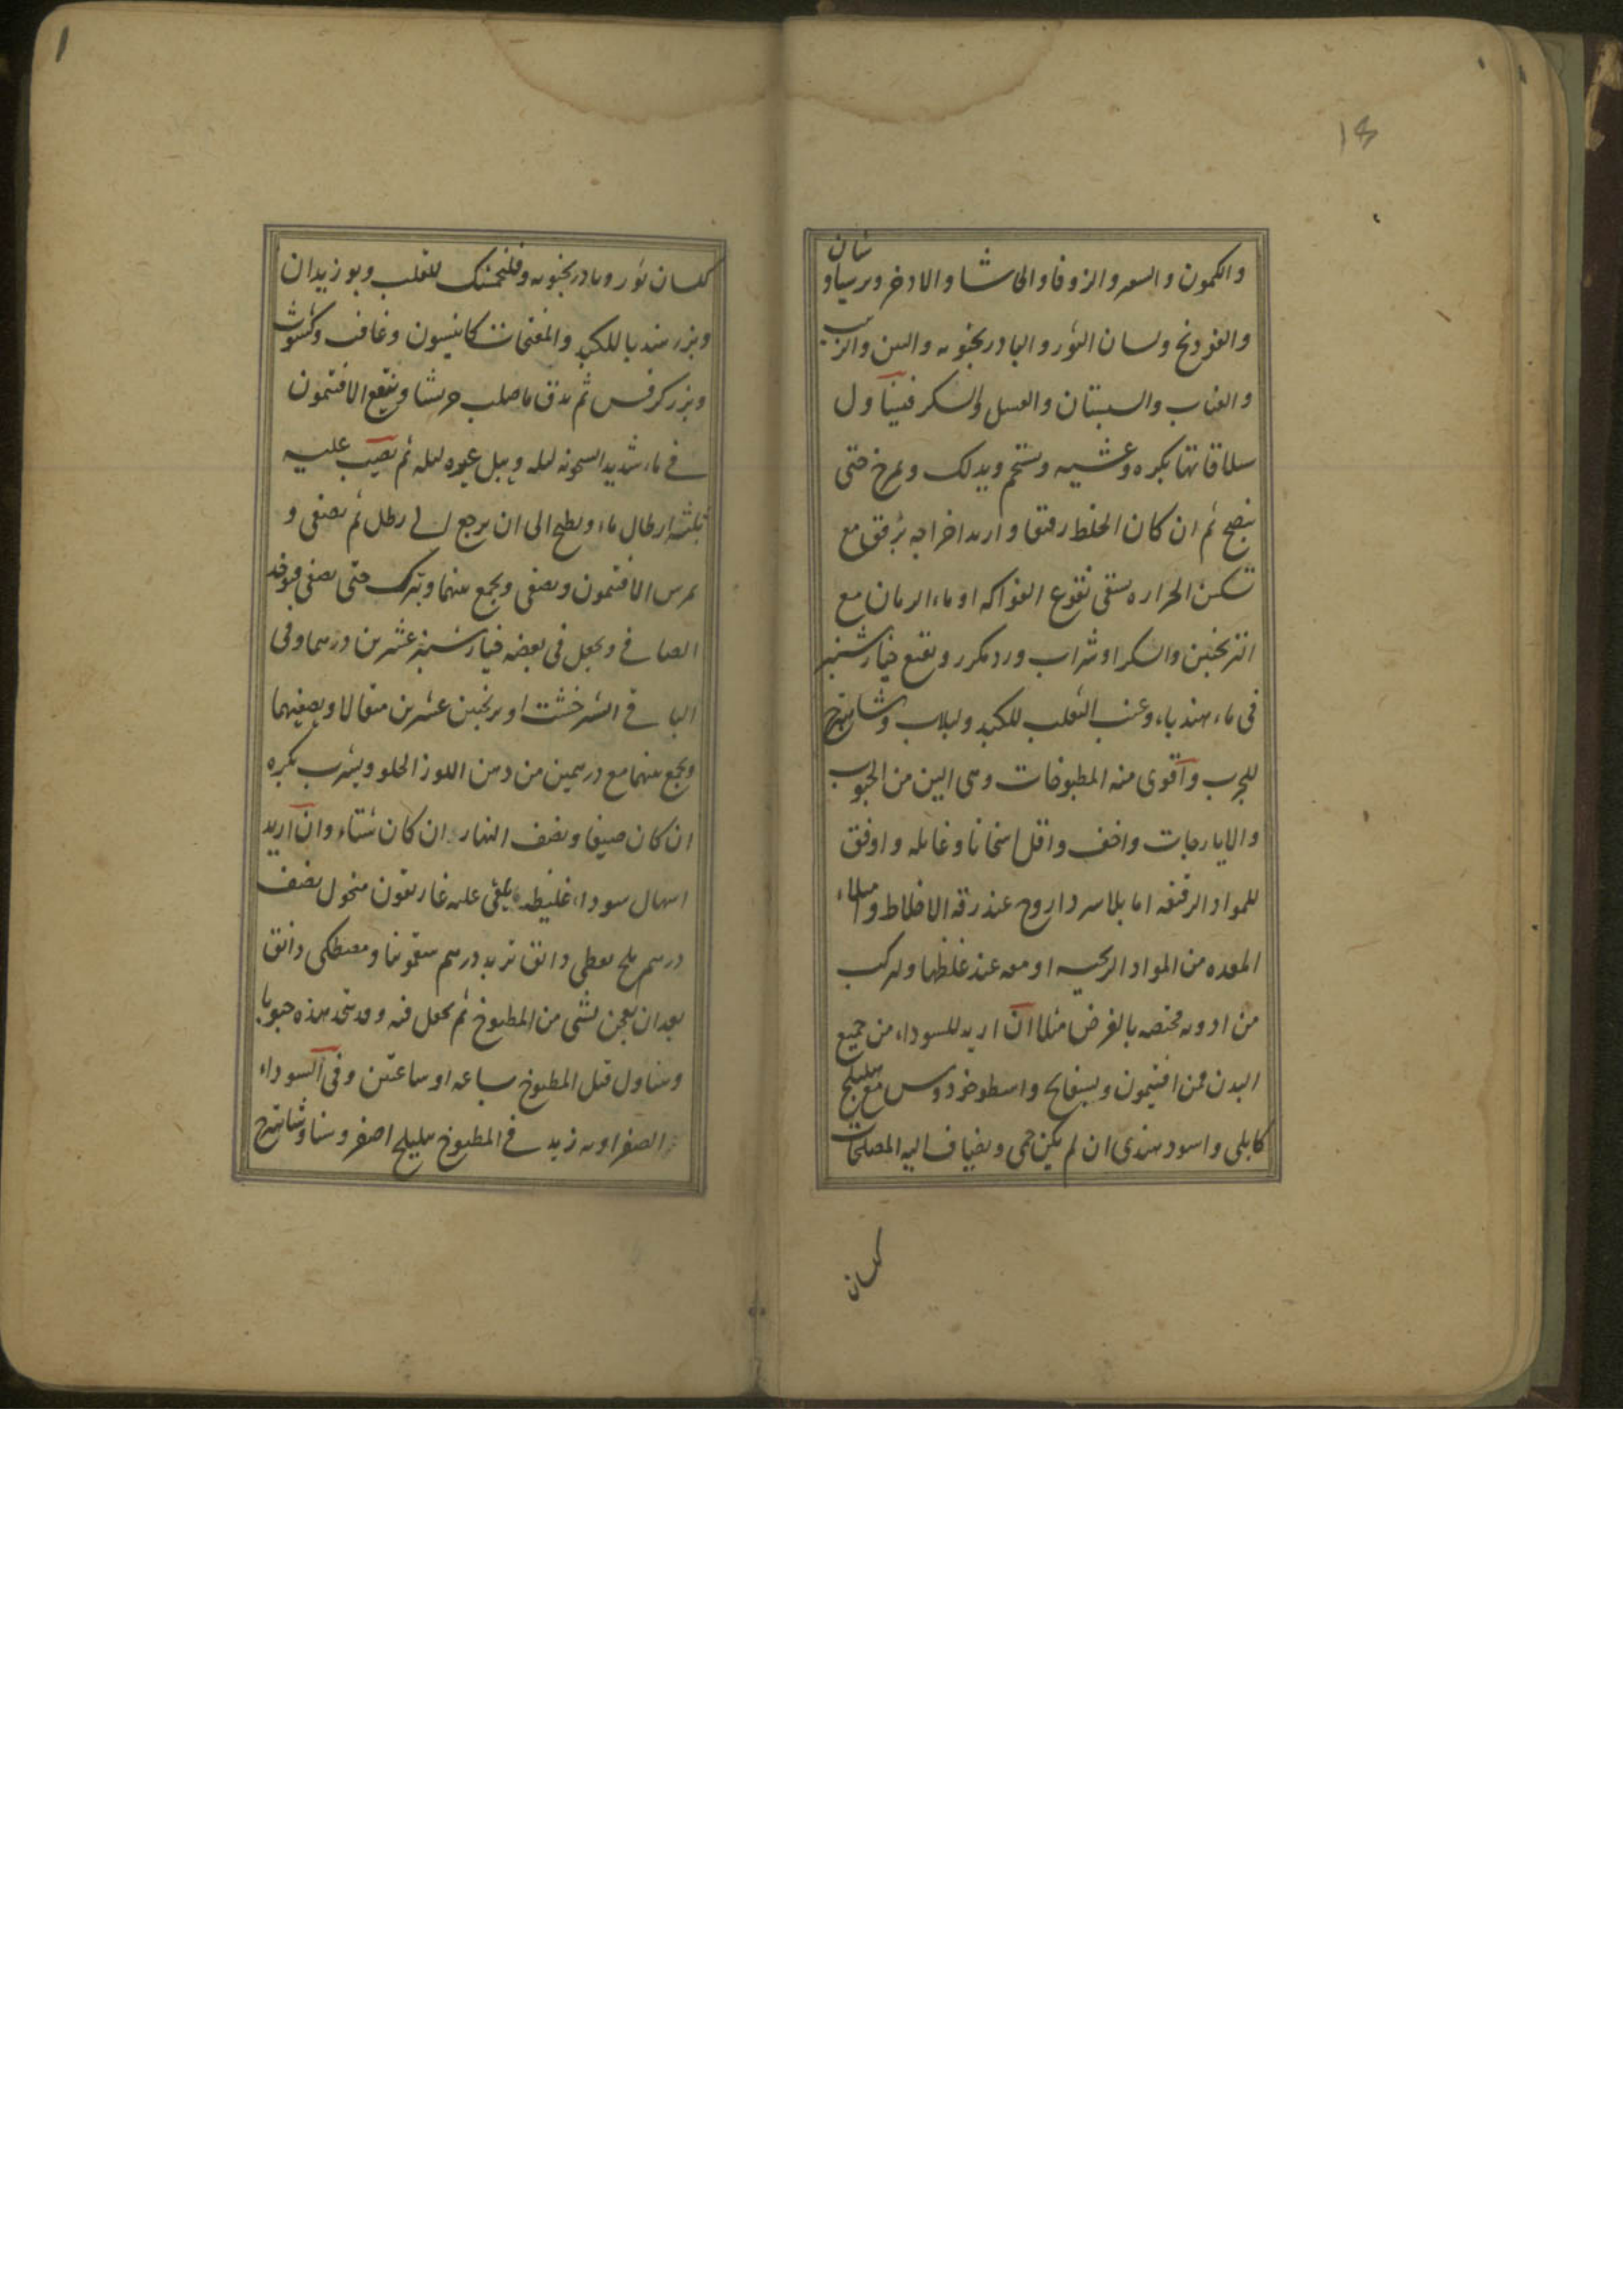 ١٤
والكمون والسعتر والزوفا والحاشا والاذخر وبرسياوشان
والفودنج ولسان الثور والبادرنجبويه والتين والزبيب
والعناب والسبستان والعسل والسكر فيتناول
سلاقاتها بكره وعشيه ويستحم ويدلك ويمرخ حتى
ينضج ثم ان كان الخلط رقيقا واريد اخراجه برفق مع
تسكين الحراره يسقى نقوع الفواكه او ماء الرمان مع
الترنجبين والسكر او شراب ورد مكرر ونقيع خيارشنبر
فى ماء هندباء وعنب الثعلب للكبد ولبلاب وشاهترج
للجرب واقوى منه المطبوخات وهى الين من الحبوب
والايارجات واخف واقل اسخانا وغايله واوفق
للمواد الرقيقه اما بلا سر داروح عند رقه الاخلاط وملاء
المعده من المواد الريحيه او معه عند غلظها وتركب
من ادويه مختصه بالغرض مثلا ان اريد للسوداء من جميع
البدن فمن افتيمون وبسفايج واسطوخودوس مع هليلج
كابلى واسود هندى ان لم يكن حمى ويضاف اليه المصلحات
كلسان
١
كلسان ثور وبادرنجبويه وفلنجمشك للقلب وبوزيدان
وبزر هندبا للكبد والمفتحات كانيسون وغافت وكشوث
وبزر كرفس ثم يدق ما صلب جريشا وينقع الافتيمون
فى ماء شديد السخونه ليله ويبل غيره ليله ثم يصب عليه
ثلثه ارطال ماء ويطبخ الى ان يرجع الى رطل ثم يصفى و
يمرس الافتيمون ويصفى ويجمع بينهما ويترك حتى يصفى فيوخذ
الصافى ويجعل فى بعضه خيارشنبر عشرين درهما وفى
الباقى الشيرخشت او ترنجبين عشرين مثقالا ويصفيهما
ويجمع بينهما مع درهمين من دهن اللوز الحلو ويشرب بكره
ان كان صيفا ونصف النهار ان كان شتاء وان اريد
اسهال سوداء غليظه يلقى عليه غاريقون منخول نصف
درهم ملح نفطى دانق تربد درهم سقمونيا ومصطكى دانق
بعد ان يعجن بشى من المطبوخ ثم يجعل فيه وقد يتخذ هذه حبوبا
ويتناول قبل المطبوخ بساعه او ساعتين وفى السوداء
الصفراويه زيد فى المطبوخ هليلج اصفر وسنا وشاهترج